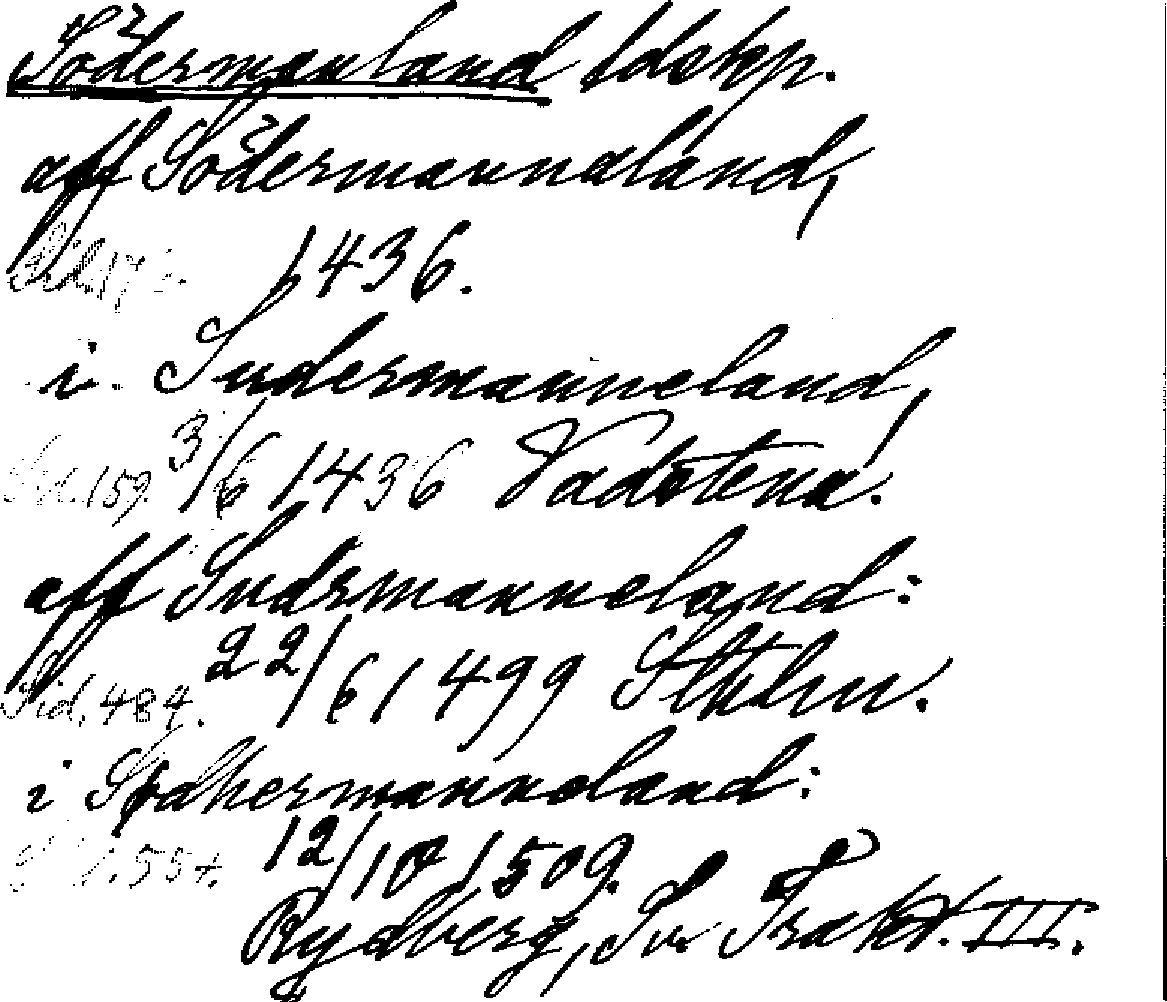 Södermanland ldskp.
aff Södermannaland,
Sid. 17 1436.
i Sudermanneland,
Sid. 159. 3/6 1436 Vadstena.
aff Sudrmanneland:
Sid. 484. 22/6 1499 Sthlm.
i Sødhermanneland:
557. 12/10 1509.
Rydberg, Sv. Trakt. III.